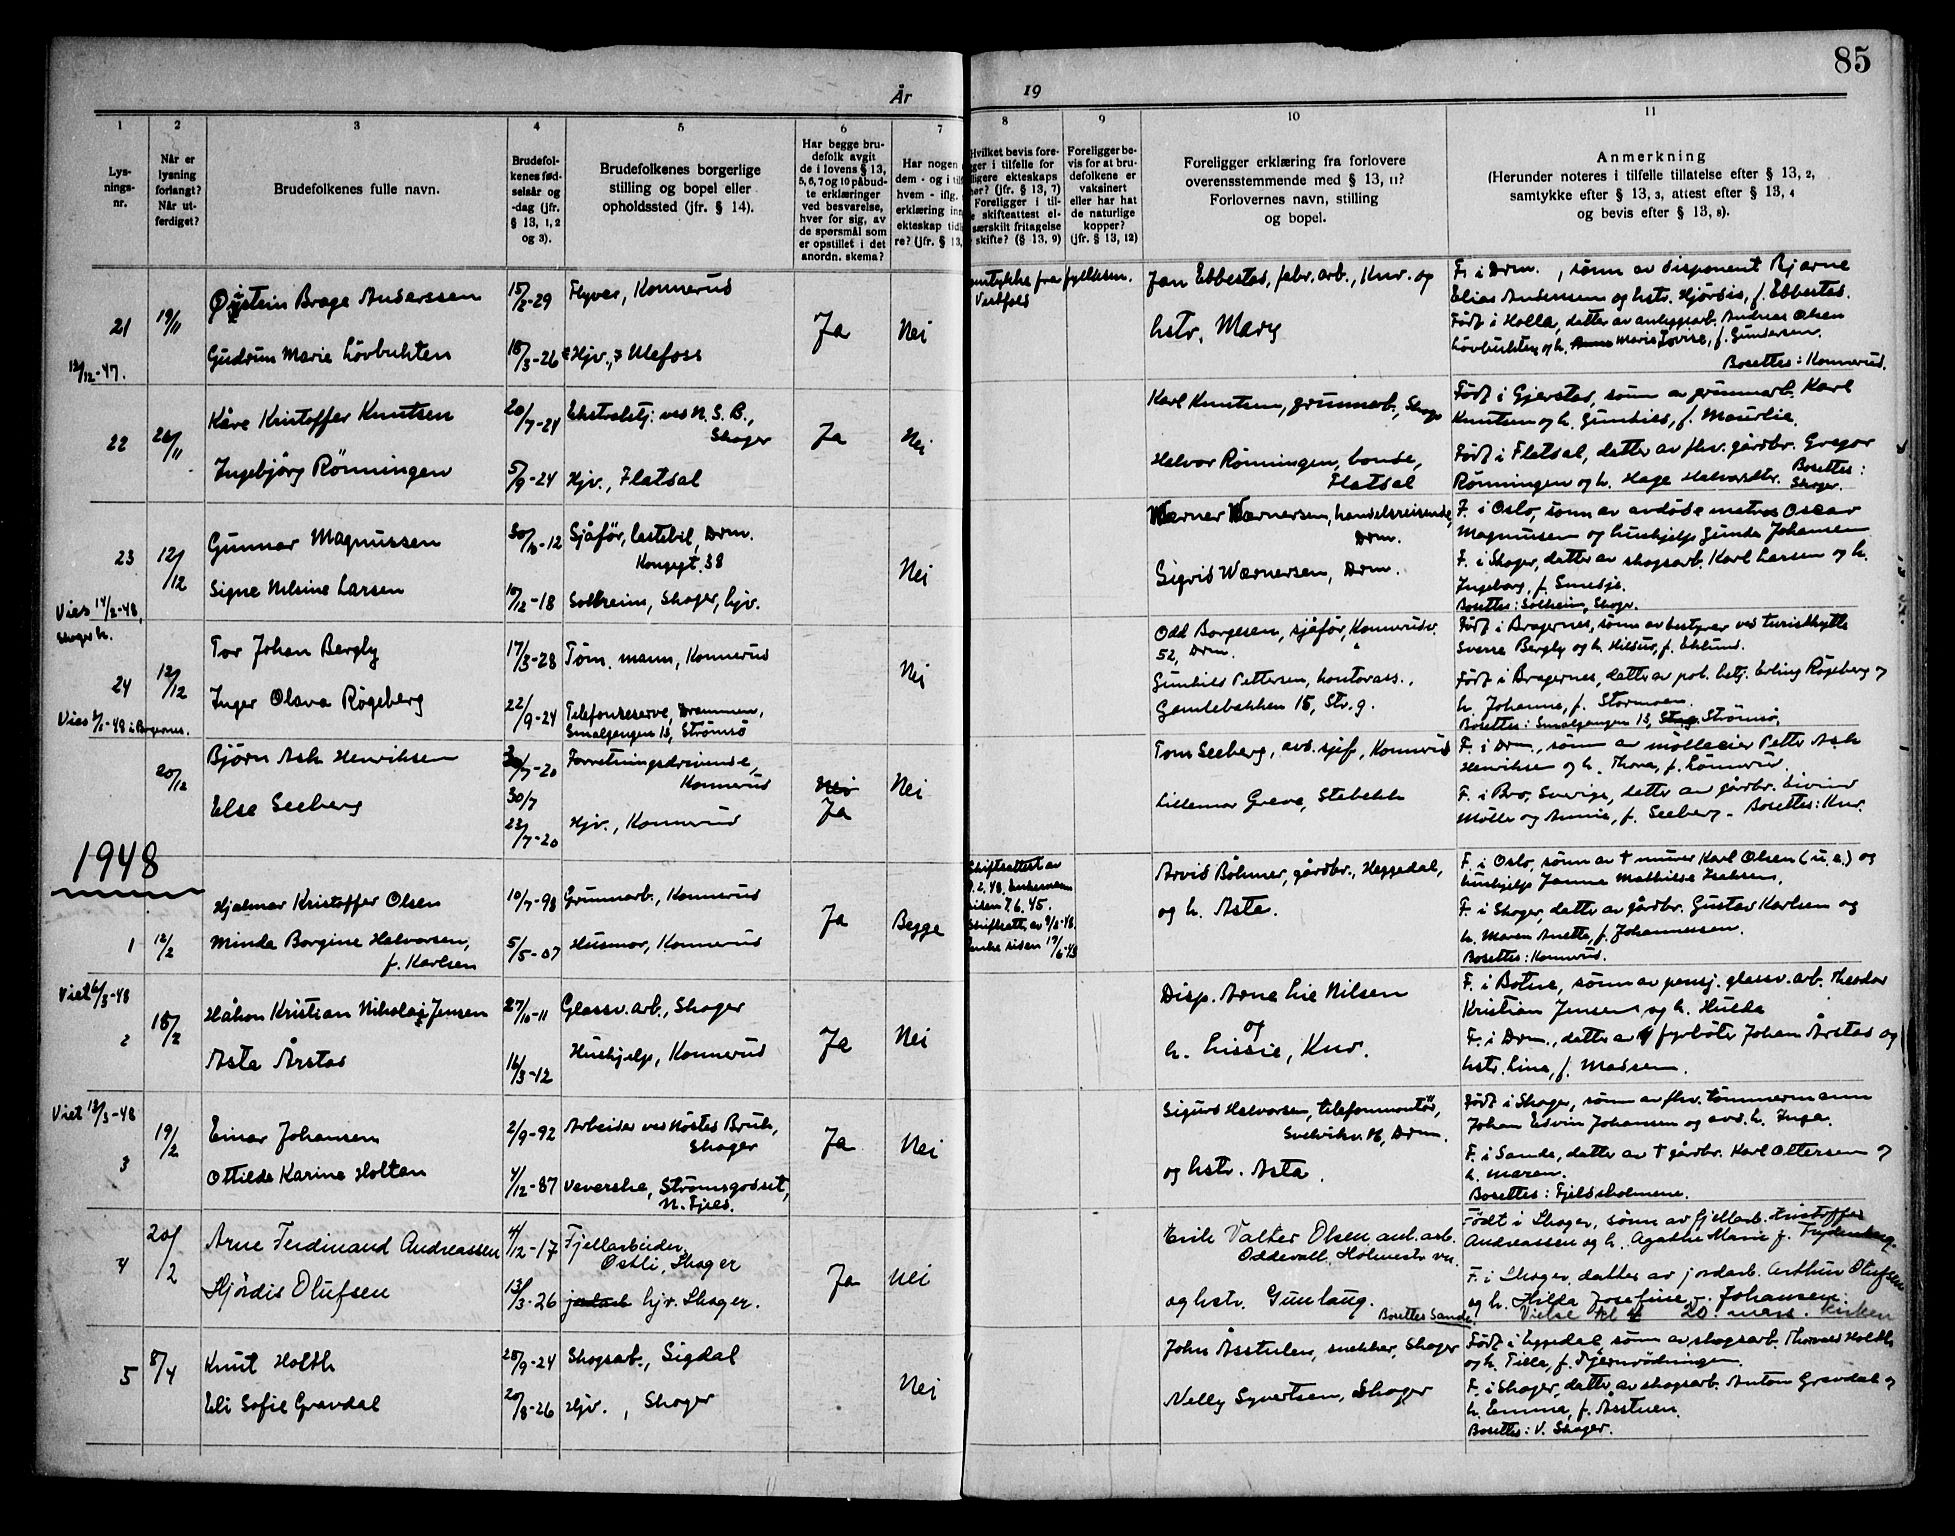 85
År
19
1
2
3
4
5
6
7
8
9
10
11
Lys-
nings-
nr.
Når er
lysning
forlangt?
Når ut-
ferdiget?
Brudefolkenes fulle navn.
Brudefol-
kenes fød-
selsår og
-dag (jfr.
§ 13, 1, 2
og 3).
Brudefolkenes borgerlige
stilling og bopel eller
opholdssted (jfr. § 14).
Har begge bru-
defolk avgit
de i lovens § 13,
5, 6, 7 og 10 påbud-
te erklæringer
ved besvarelse,
hver for sig, av
de spørsmål som
er opstillet i det
anordn. skema?
Har nogen
dem - og i til
hvem - iflg.
erklæring inn
ekteskap tid
re? (jfr. § 13,
Hvilket bevis fore-
ger i tilfelle for
ligere ekteskaps
her? (jfr. § 13, 7)
Foreligger i til-
e skifteattest el-
særskilt fritagelse
skifte? (§ 13, 9)
Foreligger be-
vis for at bru-
defolkene er
vaksinert
eller har hat
de naturlige
kopper?
(jfr. § 13, 12)
Foreligger erklæring fra forlovere
overensstemmende med § 13, 11?
Forlovernes navn, stilling
og bopel.
Anmerkning
(Herunder noteres i tilfelle tillatelse efter § 13, 2,
samtykke efter § 13, 3, attest efter § 13, 4
og bevis efter § 13, 8).
21
19/11
12/12-47.
Øistein Brage Anderssen
15/2-29
Flyver, Konnerud
Gudrun Marie Løvbukten
18/3-26
Hjv., Ulefoss
Ja
Nei
fra fylkesm.
Vestfold
Jan Ebbestad, fabr. arb., Knr. og
hstr. Mary
F. i Drm., sønn av disponent Bjarne
Elias Andersen og hstr. Hjördis, f. Ebbestad.
Født i Holla, datter av anleggsarb. Andreas Olsen
Løvbukten og h. Marie Lovise, f. Gundersen.
Bosettes: Konnerud.
22
20/11
Kåre Kristoffer Knutsen
20/7-24
Ekstrabetj. ved N.S.B.,
Skoger
Ingebjørg Rönningen
5/9-24
Hjv., Flatdal
Ja
Nei
Karl Knutsen, grunnarb., Skoger
Halvor Rønningen, bonde,
Flatdal
Født i Gjerstad, sønn av grunnarb. Karl
Knutsen og h. Gunhild, f. Maurlia.
Født i Flatdal, datter av fhv. gårdbr. Gregar
Rønningen og h. Hage Halvardtbr. Bosettes:
Skoger.
23
12/12
Vied 14/2-48,
Skoger k.
Gunnar Magnussen
Sjåfør, lastebil, Drm.
Kongegt. 38
Signe Nilsine Larsen
10/12-18
Solheim, Skoger, hjv.
Nei
Werner Wærnersen, handelsreisende,
Drm.
Sigrid Wærnersen, Drm.
F. i Oslo, sønn av avdøde Oscar
Magnussen og hushjelp Gunda Johansen
F. i Skoger, datter av skogsarb. Karl Larsen og h.
Ingeborg, f. Smedje.
Bosettes: Solheim, Skoger.
24
12/12
Tor Johan Bergly
17/3-28
Tøm. mann, Konnerud
Inger Olava Røgeberg
22/9-24
Telefonreserve, Drammen,
Smalgangen 13, Strømsø
Nei
Odd Borgesen, sjåfør, Konnerudv.
52, Drm.
Gunhild Pettersen, kontorass.,
Gamlebakken 15, Str.g.
Født i Bragernes, sønn av bestyrer ved turisthytte
Sverre Bergly og h. Hildur, f. Eklund.
Født i Bragernes, datter av pol. betj. Erling Røgeberg og
h. Johanne, f. Stormoen.
Bosettes: Smalgangen 13, Strømsø.
20/12
Bjørn Ask Henriksen
30/7-20
Forretningsdrivende,
Konnerud
Else Seeberg
30/7
23/7-20
Hjv., Konnerud
Nei
Ja
Nei
Tom Seeberg, avd. sjef, Konnerud
Lillemor Greve, Stabekk
F. i Drm, sønn av mølleeier Petter Ask
Henriksen og h. Thora, f. Lonnerud.
F. i Bro, Sverige, datter av gårdbr. Eivind
Mølle og Annie, f. Seeberg. Bosettes: Knr.
1948
1
12/2
Hjalmar Kristoffer Olsen
10/7-98
Grunnarb., Konnerud
Minda Borgine Halvorsen,
f. Karlsen
5/5-07
Husmor, Konnerud
Ja
Begge
Skifteattest av
2.48, Enkemann
siden 7.6.45.
Skifteatt. av 9/2-48.
Enke siden 19/6-43
Arvid Böhmer, gårdbr., Heggedal,
og h. Asta.
F. i Oslo, sønn av † murer Karl Olsen (u.e.) og
hushjelp Janna Mathilde Isaksen.
F. i Skoger, datter av gårdbr. Gustav Karlsen og
h. Maren Anette, f. Johannessen.
Bosettes: Konnerud.
Viet 6/3-48
2
18/2
Håkon Kristian Nikolai Jensen
27/10-11
Glassv. arb., Skoger
Asta Årstad
16/3-12
Hushjelp, Konnerud
Ja
Nei
Disp. Arne Lie Nilsen
og
h. Lissie, Knr.
F. i Botne, sønn av pensj. glassv. arb. Theodor
Kristian Jensen og h. Hulda
F. i Drm., datter av fyrbøter Johan Årstad og
hstr. Lina, f. Madsen.
Viet 13/3-48
3
19/2
Einar Johansen
2/9-92
Arbeider ved Nøsted Bruk,
Skoger
Ottilde Karine Holtan
4/12-87
Veverske, Strømsgodset,
N. Fjeld.
Ja
Nei
Sigurd Halvorsen, telefonmontør,
Svelvikv. , Drm.
og hstr. Asta.
Født i Skoger, sønn av fhv. tømmermann
Johan Edvin Johansen og avd. h. Inga.
F. i Sande, datter av † gårdbr. Karl Ottersen og
h. Maren.
Bosettes: Fjeldsholmene.
4
20/2
Arne Ferdinand Andreassen
4/12-17
Fjellarbeider,
Østli, Skoger
Hjørdis Olufsen
13/3-26
jordarb hjv. Skoger.
Ja
Nei
Erik Valter Olsen, anl. arb.
Oddevall, Holmestr. vn.
og hstr. Gunlaug.
Bosettes Sande.
Født i Skoger, sønn av fjellarb. Kristoffer
Andreassen og h. Agathe Marie f. Frydenhaug.
F. i Skoger, datter av jordarb. Arthur Olufsen
og h. Hilda Josefine, f. Johansen.
Vielse kl 4 20. mars. Kirken
5
8/4
Knut Holth
28/9-24
Skogsarb., Sigdal
Eli Sofie Gravdal
20/8-26
Hjv., Skoger
Nei
John Åsstulen, snekker, Skoger
Nelly Syvertsen, Skoger
Født i Eggedal, sønn av skogsarb. Thomas Holth
og h. Tilla, f. Kjernrødningen.
F. i Skoger, datter av skogsarb. Anton Gravdal og
h. Emma, f. Åsstuen.
Bosettes: V. Skoger.